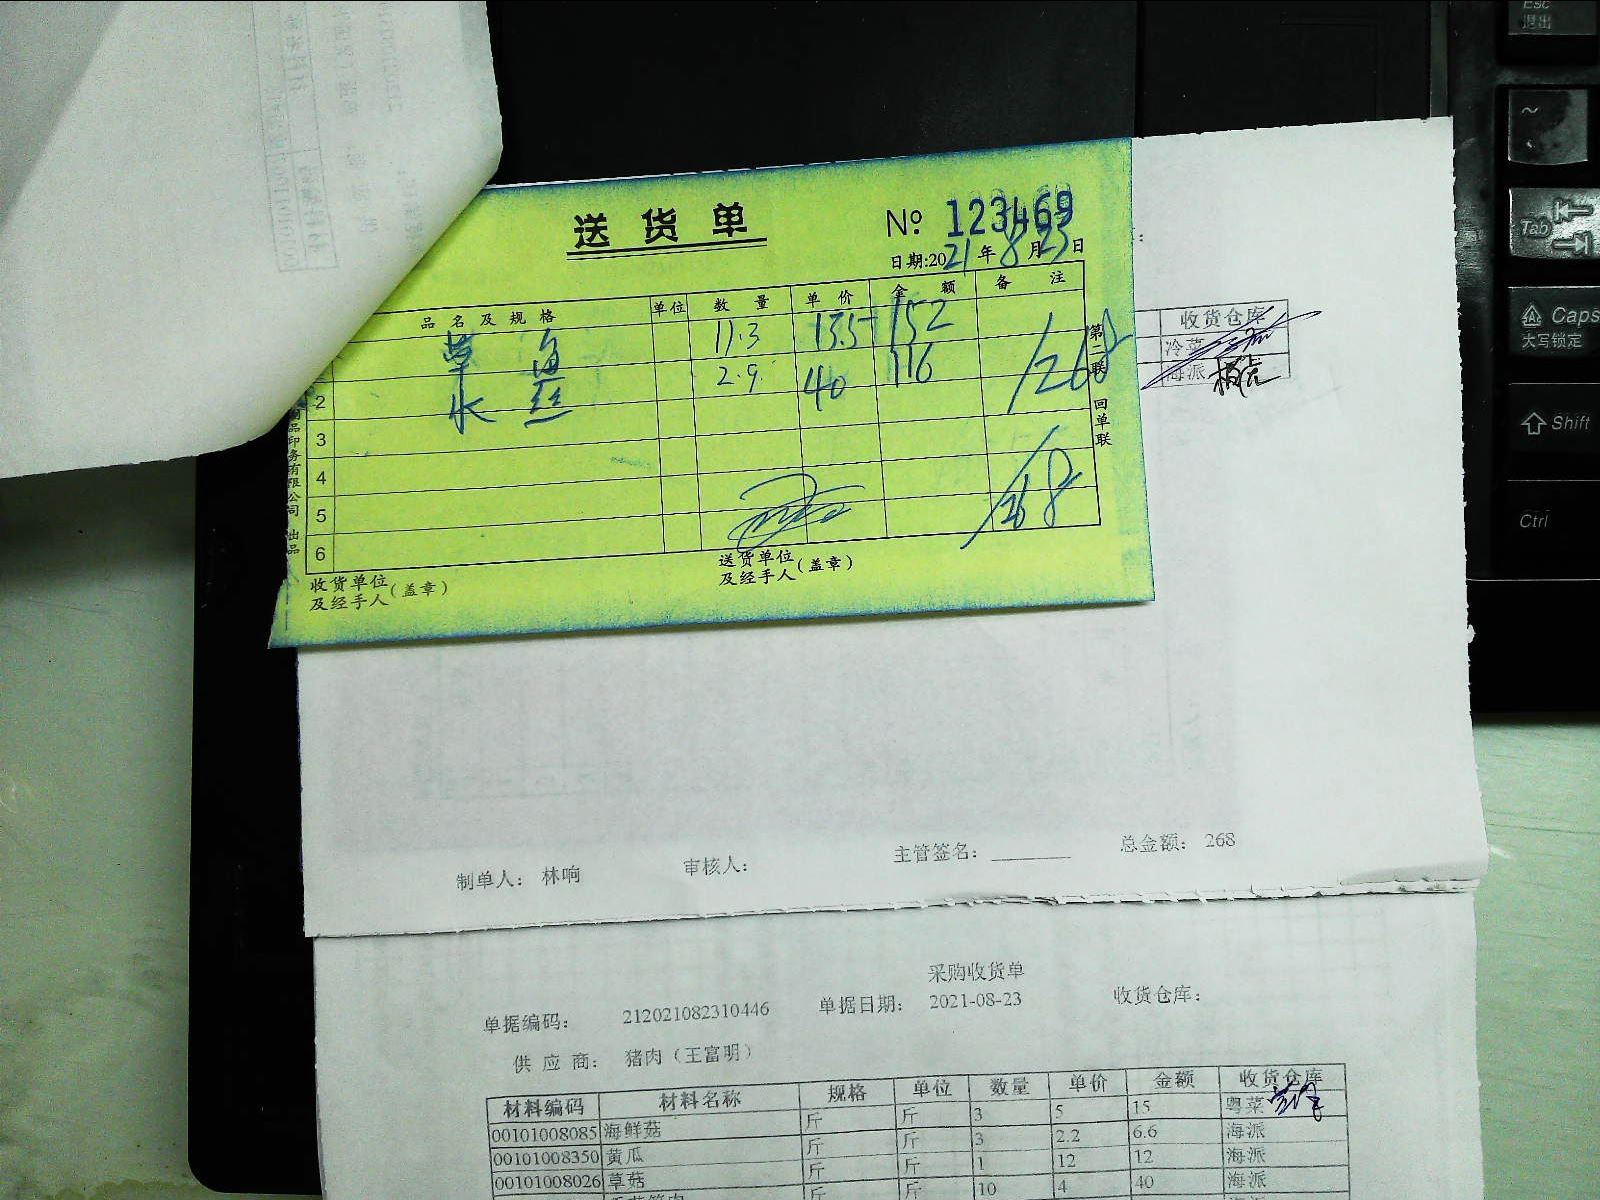 送货单
№ 123469
日期:2021年8月23日
品名及规格 单位 数量 单价 金额 备注
草海 11.3 13.5 152
2 水丝 2.9 40 116 /268
3
4
5 /268
6
第二联 回单联
品印务有限公司 出品
收货单位
及经手人(盖章)
送货单位
及经手人(盖章)
收货仓库
冷菜
海派
制单人: 林响 审核人: 主管签名: 总金额: 268
采购收货单
单据编码: 212021082310446 单据日期: 2021-08-23 收货仓库:
供应商: 猪肉(王富明)
材料编码 材料名称 规格 单位 数量 单价 金额 收货仓库
00101008085 海鲜菇 斤 斤 3 5 15 粤菜
00101008350 黄瓜 斤 斤 3 2.2 6.6 海派
00101008026 草菇 斤 斤 1 12 12 海派
斤 斤 10 4 40 海派
Esc
退出
~
Tab
Caps
大写锁定
Shift
Ctrl